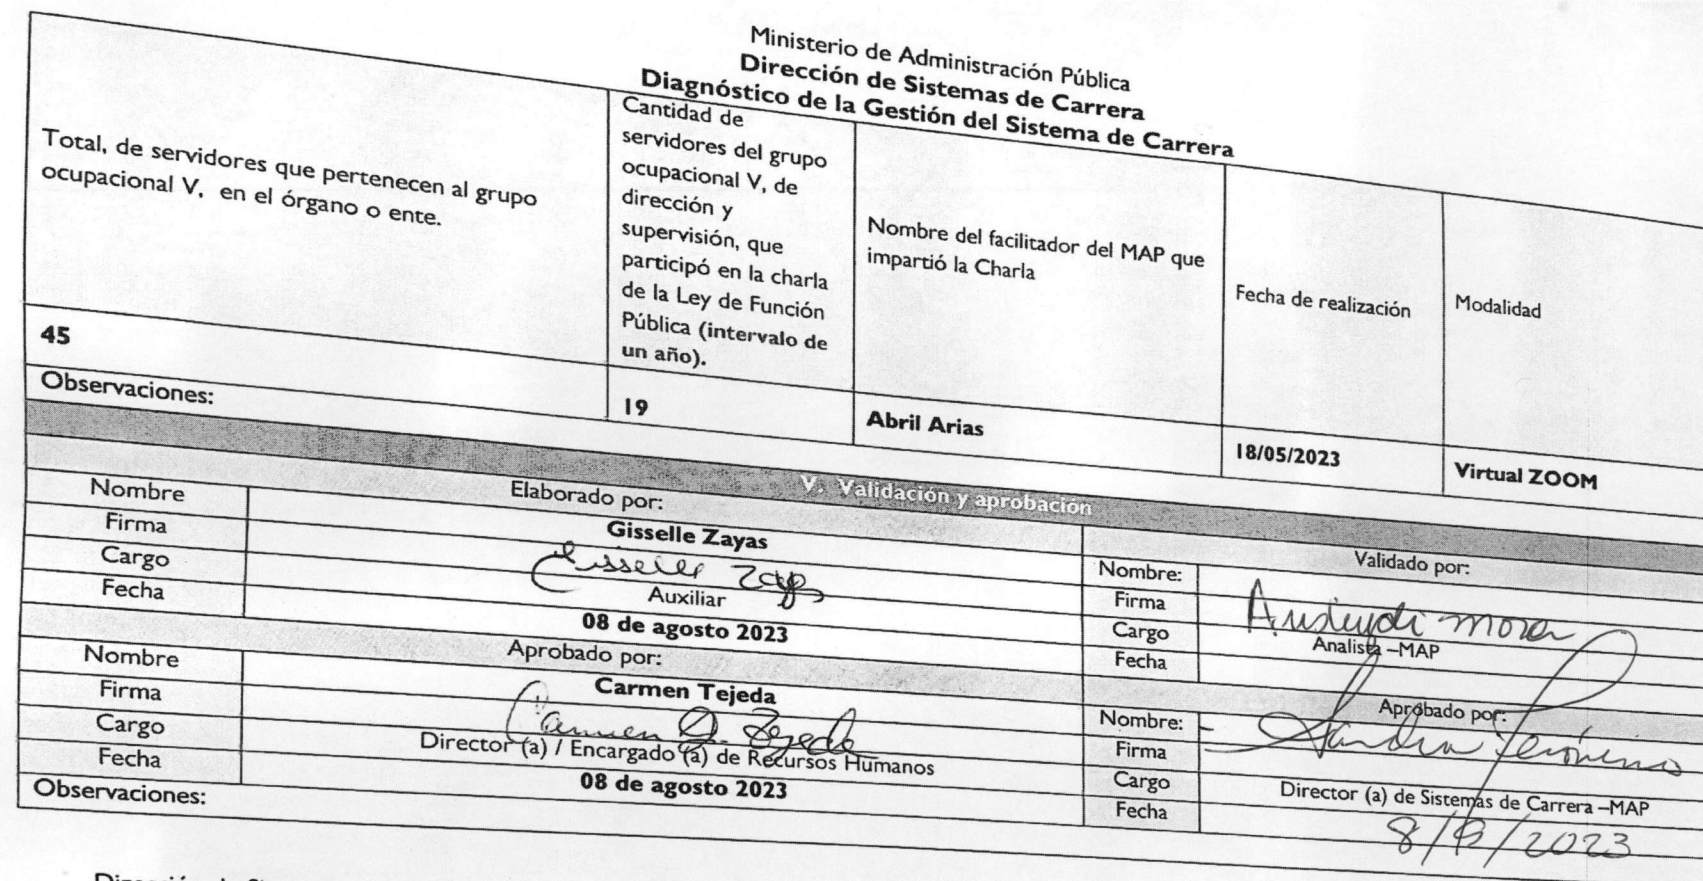 Ministerio de Administración Pública
Dirección de Sistemas de Carrera
Diagnóstico de la Gestión del Sistema de Carrera
Total, de servidores que pertenecen al grupo
ocupacional V, en el órgano o ente.
Cantidad de
servidores del grupo
ocupacional V, de
dirección y
supervisión, que
participó en la charla
de la Ley de Función
Pública (intervalo de
un año).
Nombre del facilitador del MAP que
impartió la Charla
Fecha de realización
Modalidad
45
19
Abril Arias
18/05/2023
Virtual ZOOM
Observaciones:
V. Validación y aprobación
Elaborado por:
Validado por:
Nombre
Gisselle Zayas
Nombre:
Firma
Gisselle Zayas
Firma
Mora
Cargo
Auxiliar
Cargo
Analista –MAP
Fecha
08 de agosto 2023
Fecha
Aprobado por:
Aprobado por:
Nombre
Carmen Tejeda
Nombre:
Firma
Carmen G. Tejeda
Firma
Sandra Jerónimo
Cargo
Director (a) / Encargado (a) de Recursos Humanos
Cargo
Director (a) de Sistemas de Carrera –MAP
Fecha
08 de agosto 2023
Fecha
2023
Observaciones: